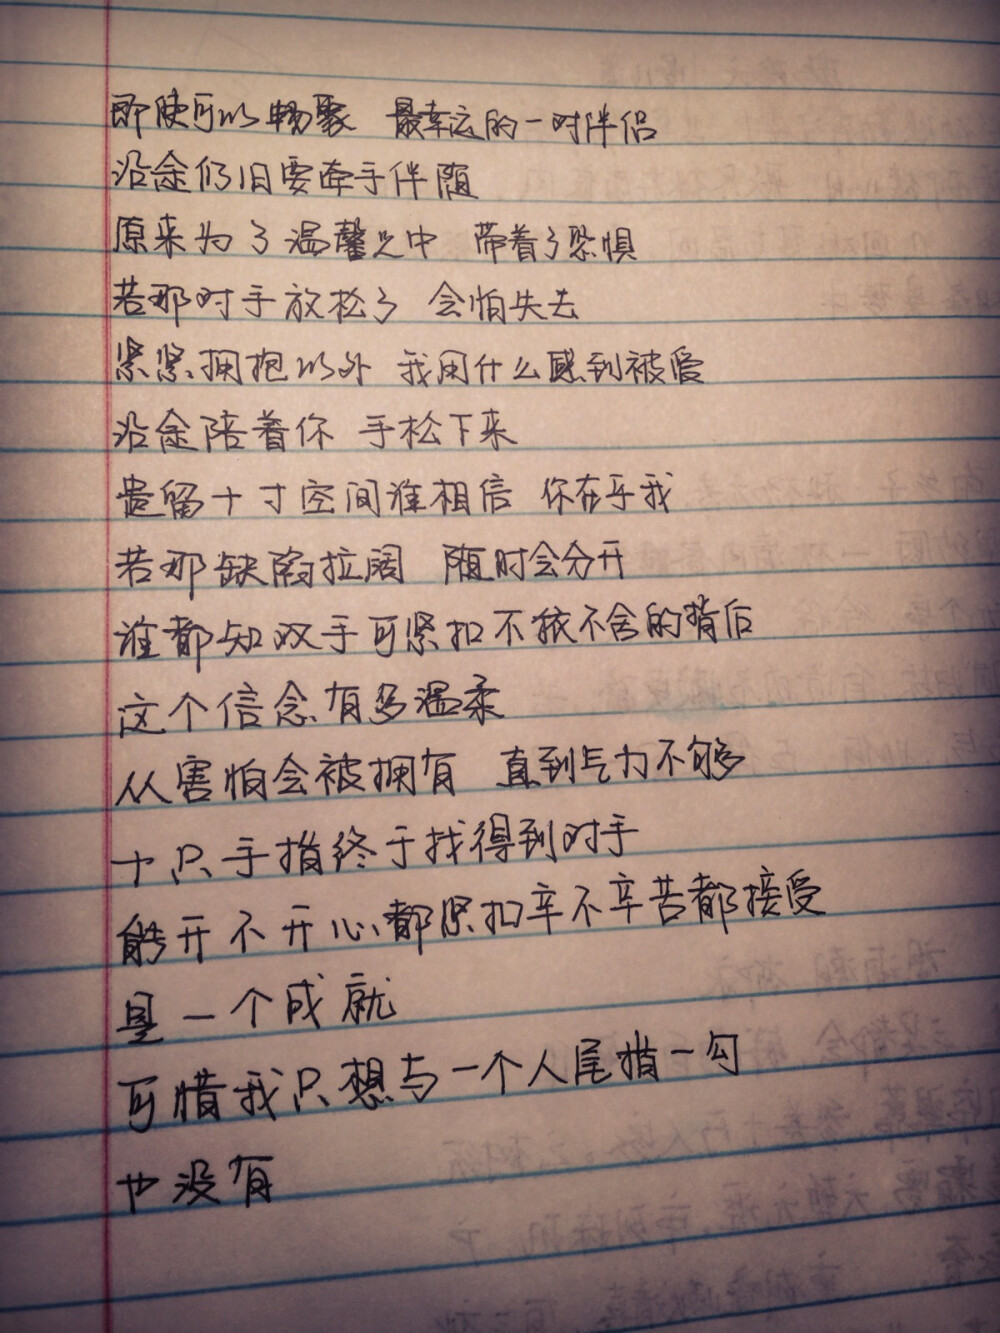 即使可以畅聚 最幸运的一对伴侣
沿途仍旧要牵手伴随
原来为了温馨之中 带着了恐惧
若那对手放松了 会怕失去
紧紧拥抱以外 我用什么感到被爱
沿途陪着你 手松下来
遗留十寸空间谁相信 你在乎我
若那缺陷拉阔 随时会分开
谁都知双手可紧扣不依不舍的背后
这个信念有多温柔
从害怕会被拥有 直到气力不够
十只手指终于找得到对手
能开不开心都紧扣辛不辛苦都接受
是一个成就
可惜我只想与一个人尾指一勾
也没有